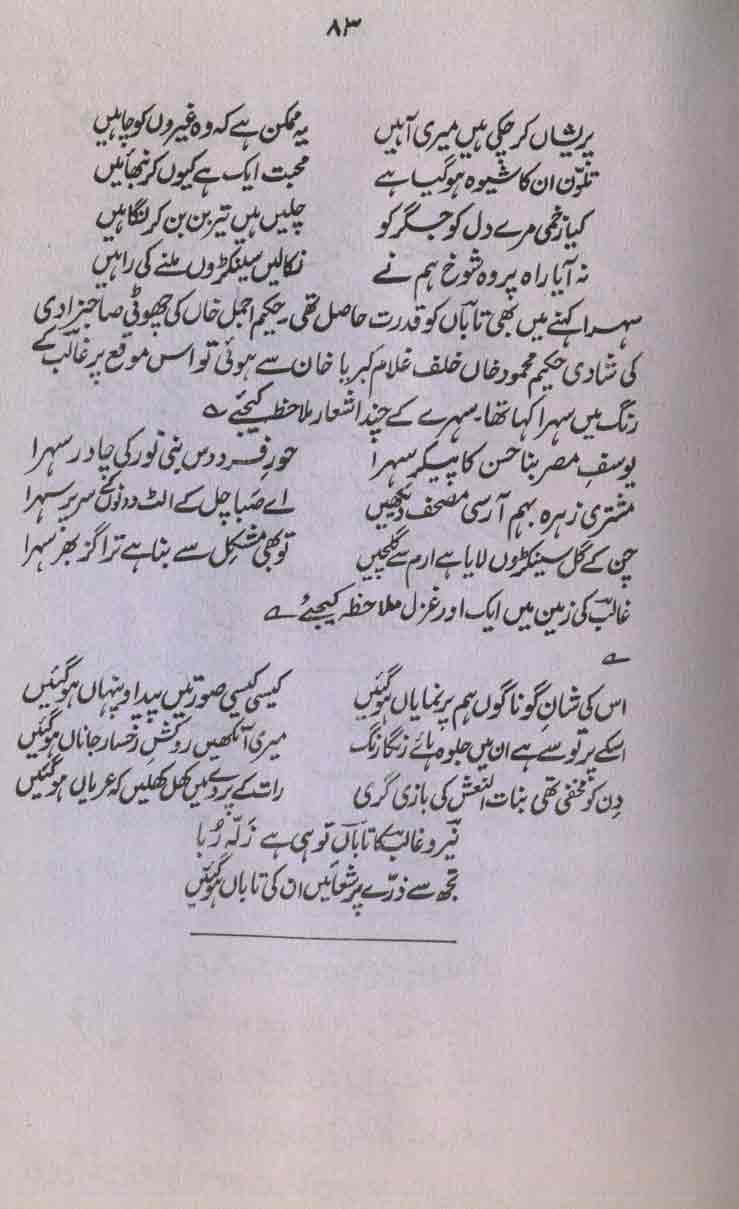 ۸۳
پریشاں کر چکی ہیں میری آہیں یہ ممکن ہے کہ وہ غیروں کو چاہیں
تلوّن ان کا شیوہ ہو گیا ہے محبت ایک ہے کیوں کر نبھائیں
کیا زخمی مرے دل کو جگر کو چلیں ہیں تیر بن بن کر نگاہیں
نہ آیا راہ پر وہ شوخ ہم نے نکالیں سینکڑوں ملنے کی راہیں
سہرا کہنے میں بھی تاباؔں کو قدرت حاصل تھی۔ حکیم اجمل خاں کی چھوٹی صاحبزادی
کی شادی حکیم محمود خاں خلف غلام کبریا خان سے ہوئی تو اس موقع پر غالبؔ کے
رنگ میں سہرا کہا تھا۔ سہرے کے چند اشعار ملاحظہ کیجئے ؎
یوسفِ مصر بنا حسن کا پیکر سہرا حورِ فردوس بنی نور کی چادر سہرا
مشتری زہرہ بہم آرسی مصحف دیکھیں اے صبا چل کے الٹ دونوں کے سر پر سہرا
چن کے گل سینکڑوں لایا ہے ارم سے گلچیں تو بھی مشکل سے بنا ہے ترا گز بھر سہرا
غالبؔ کی زمین میں ایک اور غزل ملاحظہ کیجئے ؎
؎
اس کی شانِ گوناگوں ہم پر نمایاں ہو گئیں کیسی کیسی صورتیں پیدا و پنہاں ہو گئیں
اسکے پرتو سے ہے ان میں جلوہ ہائے رنگا رنگ میری آنکھیں روکشِ رخسار جاناں ہو گئیں
دن کو مخفی تھی بنات النعش کی بازی گری رات کے پردے میں کھل کھلیں کہ عریاں ہو گئیں
نیّر و غالبؔ کا تاباؔں تو ہی ہے زَلّہ رُبا
تجھ سے ذرّے پر شعائیں ان کی تاباں ہو گئیں